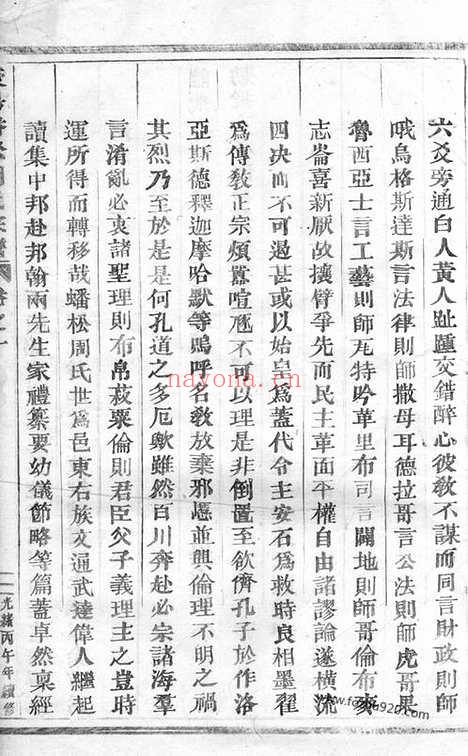 六爻旁通白人黃人趾踵交錯醉心彼敎不謀而同言財政則師
哦烏格斯達斯言法律則師撒母耳德拉哥言公法則師虎哥果
魯西亞士言工藝則師瓦特吟革里布司言闢地則師哥倫布豪
志崙喜新厭故攘臂爭先而民主革面平權自由諸謬論遂橫流
四决而不可遏甚或以始皇爲蓋代令主安石爲救時良相墨翟
爲傳敎正宗煩囂喧豗不可以理是非倒置至欲儕孔子於作洛
亞斯德釋迦摩哈默等嗚呼名敎放棄邪慝並興倫理不明之禍
其烈乃至於是是何孔道之多厄歟雖然百川奔赴必宗諸海羣
言淆亂必衷諸聖理則布帛菽粟倫則君臣父子義理主之豈時
運所得而轉移哉蟠松周氏世爲邑東右族文通武達偉人繼起
讀集中邦赴邦翰兩先生家禮纂要幼儀節略等篇蓋卓然稟經
卷之一
光緒丙午年續修
nayona.cn